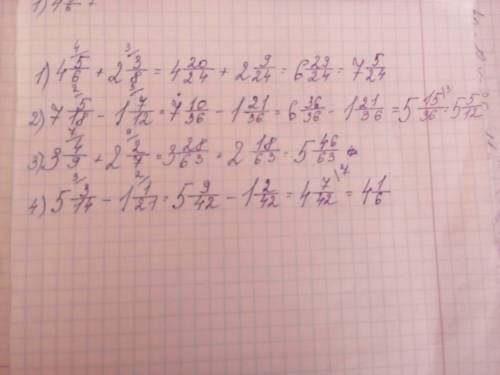 1) 4 5/6 + 2 3/8 = 4 20/24 + 2 9/24 = 6 29/24 = 7 5/24
2) 7 5/18 - 1 7/12 = 7 10/36 - 1 21/36 = 6 36/36 - 1 21/36 = 5 15/36 = 5 5/12
3) 3 4/9 + 2 2/7 = 3 28/63 + 2 18/63 = 5 46/63
4) 5 3/14 - 1 1/21 = 5 9/42 - 1 2/42 = 4 7/42 = 4 1/6